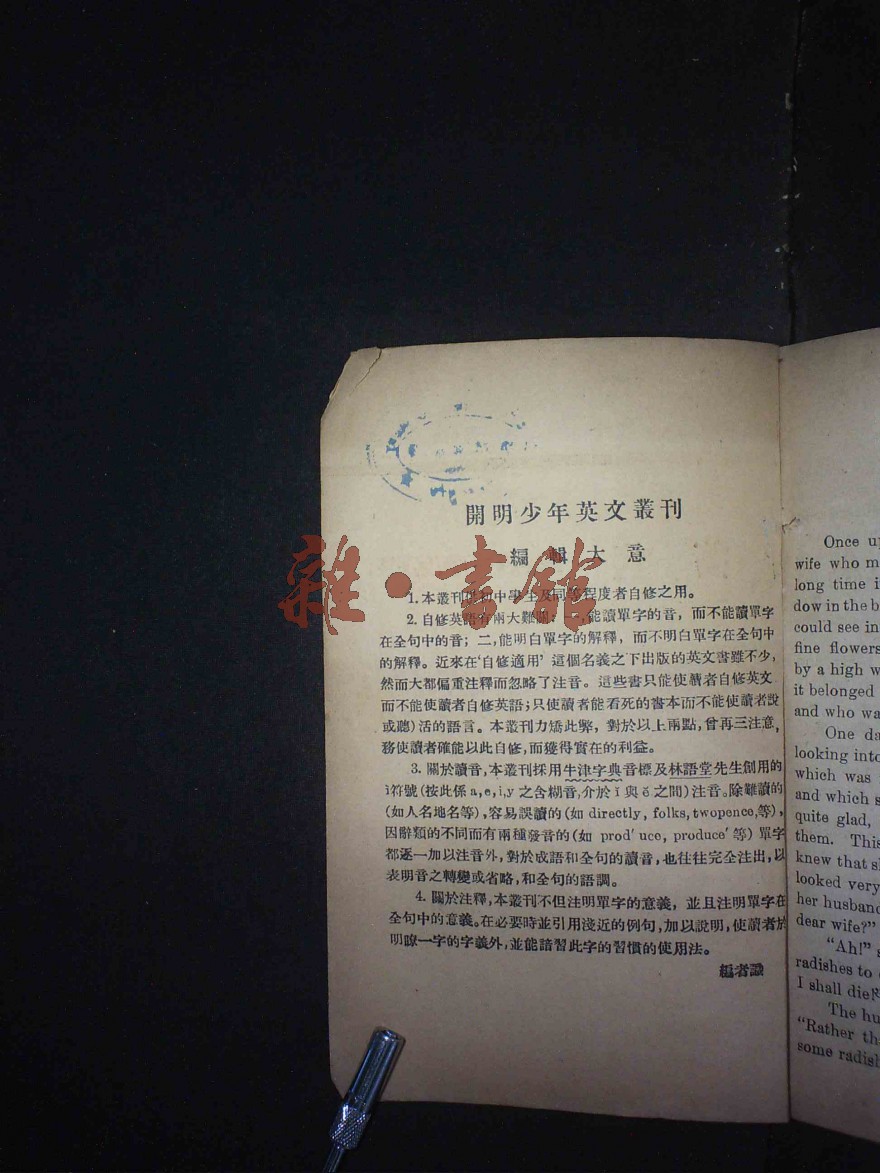 開明少年英文叢刊
編輯大意
雜·書館
1. 本叢刊供初中學生及同等程度者自修之用。
2. 自修英語有兩大難關:一,能讀單字的音,而不能讀單字
在全句中的音;二,能明白單字的解釋,而不明白單字在全句中
的解釋。近來在‘自修適用’這個名義之下出版的英文書雖不少,
然而大都偏重注釋而忽略了注音。這些書只能使讀者自修英文
而不能使讀者自修英語;只使讀者能看死的書本而不能使讀者說
或聽)活的語言。本叢刊力矯此弊,對於以上兩點,曾再三注意,
務使讀者確能以此自修,而獲得實在的利益。
3. 關於讀音,本叢刊採用牛津字典音標及林語堂先生創用的
i符號(按此係a,e,i,y之含糊音,介於ĭ與ĕ之間)注音。除難讀的
(如人名地名等),容易誤讀的(如 directly, folks, twopence,等),
因辭類的不同而有兩種發音的(如 prod′uce, produce′等)單字
都逐一加以注音外,對於成語和全句的讀音,也往往完全注出,以
表明音之轉變或省略,和全句的語調。
4. 關於注釋,本叢刊不但注明單字的意義,並且注明單字在
全句中的意義。在必要時並引用淺近的例句,加以說明,使讀者於
明瞭一字的字義外,並能諳習此字的習慣的使用法。
編者識
Once u
wife who m
long time i
dow in the b
could see in
fine flowers
by a high w
it belonged
and who wa
One da
looking into
which was
and which s
quite glad,
them. This
knew that s
looked very
her husband
dear wife?"
"Ah!" s
radishes to
I shall die
The hu
"Rather th
some radish